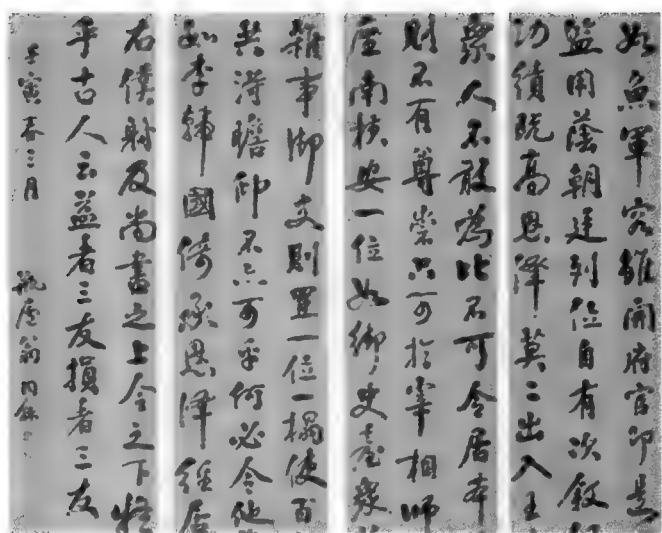 如魚軍容雖開府官即是
監用蔭朝廷列位自有次敘
功績既高恩澤莫二出入王
衆人不敢為比不可令居本
則不有尊崇只可於宰相師
座南橫安一位如御史臺衆
雜事御史別置一位一榻使百
共得瞻仰不亦可乎何必令他
如李輔國倚承恩澤徑居
右僕射及尚書之上令之下
乎古人云益者三友損者三友
壬寅春三月 瓶廬翁同龢